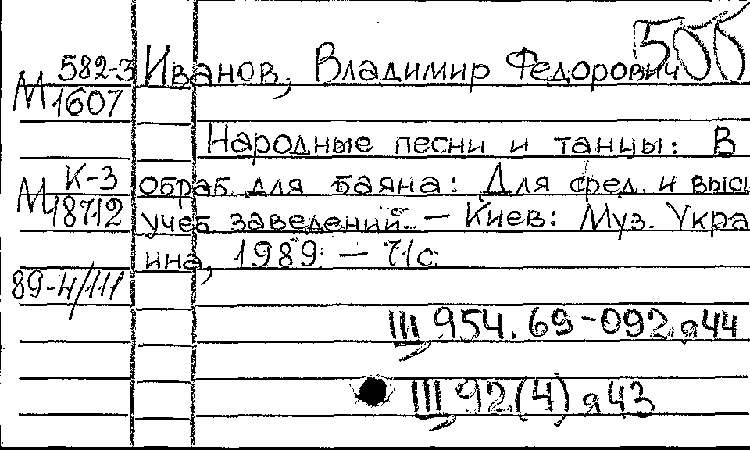 500
582-3 Иванов, Владимир Федорович
М 1607
Народные песни и танцы: В
К-3 обраб. для баяна: Для сред. и высш
М 18712 учеб. заведений. — Киев: Муз. Укра
ина, 1989. — 71с.
89-4/111
Ш 954.69-092.я44
Ш 92(4)я43